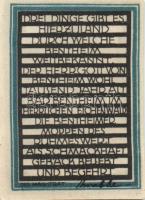 DREI DINGE GIBT ES
HIERZULAND
DURCH WELCHE
BENTHEIM
WEITBEKANNT.
DER HERRGOTT VON
BENTHEIM WOHL
TAUSEND JAHR ALT
BAD BENTHEIM IM
HERRLICHEN EICHENWALD
DIE BENTHEIMER
MOPPEN DES
RUHMES WERT
ALS SCHMACKHAFT
GEBÄCK BELIEBT
UND BEGEHRT